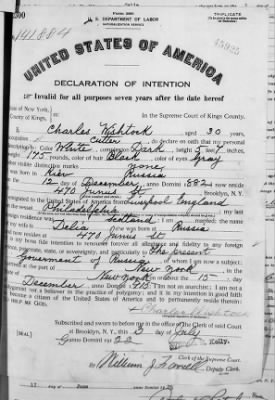 TRIPLICATE
U. S. DEPARTMENT OF LABOR
NATURALIZATION SERVICE
141884
UNITED STATES OF AMERICA
DECLARATION OF INTENTION
Invalid for all purposes seven years after the date hereof
of New York,
County of Kings, In the Supreme Court of Kings County.
I, Charles Wishtock aged 30 years,
occupation Cutter do declare on oath that my personal
description is: Color White complexion Dark 5 feet inches,
weight 175 pounds, color of hair Black color of eyes Gray
other visible distinctive marks none
born in Kiev Russia
12 day of December anno Domini 882 I now reside
at 470 Junius St Brooklyn, N. Y.
Liverpool England
Philadelphia
residence was Scotland I am married; the name
of my wife is Delia she was born in Russia
and now resides at 470 Junius St
It is my bona fide intention to renounce forever all allegiance and fidelity to any foreign
prince, potentate, state, or sovereignty, and particularly to The present
Government of Russia of whom I am now a subject;
I arrived at the port of New York
New York on or about the 15 day
December anno Domini I am not an anarchist; I am not a
polygamist nor a believer in the practice of polygamy; and it is my intention in good faith
to become a citizen of the United States of America and to permanently reside therein:
HELP ME GOD.
Charles Wishtock
Subscribed and sworn to before me in the office of the Clerk of said Court
[SEAL] at Brooklyn, N. Y., this 3 day of July
anno Domini 22
Clerk of the Supreme Court.
William J. Deputy Clerk.